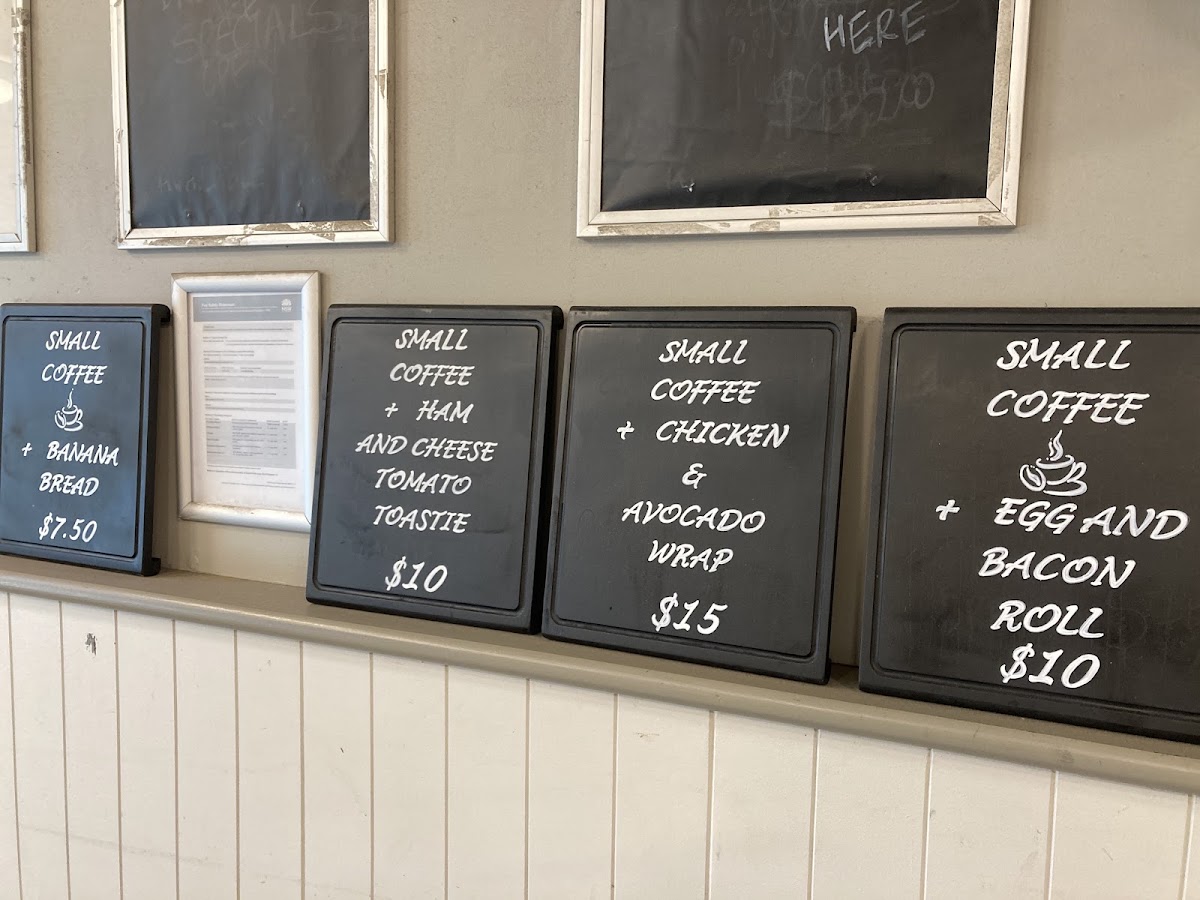 SPECIALS
HERE
SMALL
COFFEE
+ BANANA
BREAD
$7.50
SMALL
COFFEE
+ HAM
AND CHEESE
TOMATO
TOASTIE
$10
SMALL
COFFEE
+ CHICKEN
&
AVOCADO
WRAP
$15
SMALL
COFFEE
+ EGG AND
BACON
ROLL
$10